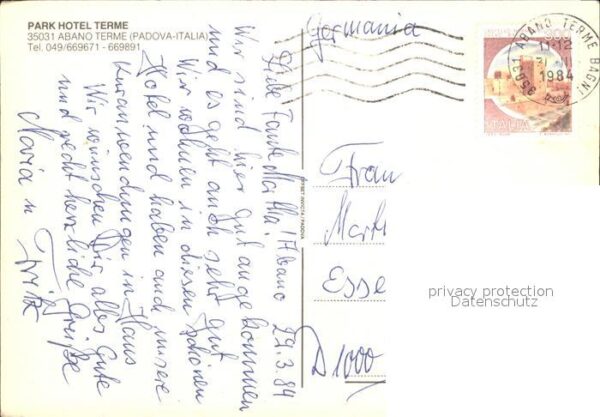 PARK HOTEL TERME
35031 ABANO TERME (PADOVA-ITALIA)
Tel. 049/669671 - 669891
Germania
35031 ABANO TERME BAGNI
11-12
1984
ITALIA
Liebe Tante Martha! Abano 29.3.84
Wir sind hier gut angekommen
und es geht auch sehr gut
Wir wohnen in diesen schönen
Hotel und haben auch unsere
Kuranwendungen in Haus
Wir wünschen Dir alles Gute
und recht herzliche Grüße
Maria u
Fritz
OFFSET INVICTA / PADOVA
Frau
Marth
Esse
D 1000
privacy protection
Datenschutz